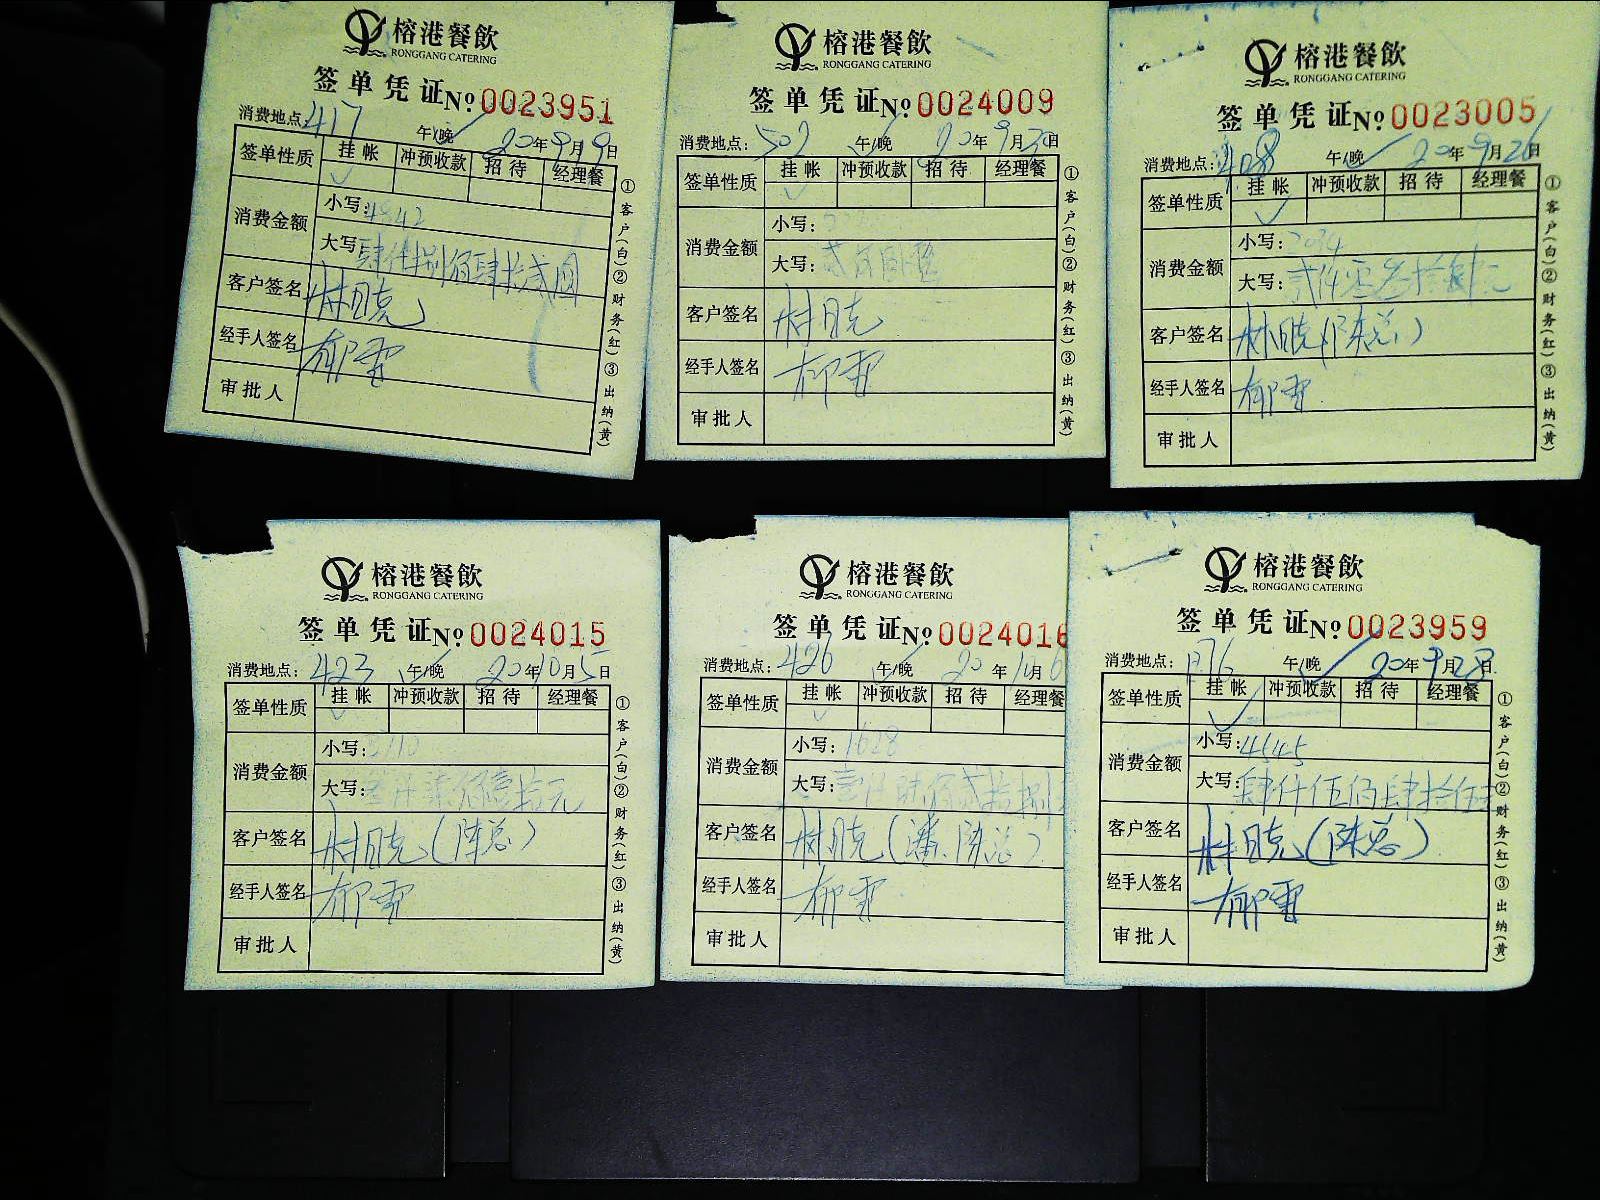 榕港餐飲
RONGGANG CATERING
签单凭证 No 0023951
消费地点: 417 午/晚 20年9月9日
签单性质 挂帐 冲预收款 招待 经理餐
消费金额 小写: 4842
大写: 肆仟捌佰肆拾贰圆
客户签名
经手人签名
审批人
①客户(白)②财务(红)③出纳(黄)
榕港餐飲
RONGGANG CATERING
签单凭证 No 0024009
消费地点: 507 午/晚 20年9月30日
签单性质 挂帐 冲预收款 招待 经理餐
消费金额 小写:
大写:
客户签名
经手人签名
审批人
①客户(白)②财务(红)③出纳(黄)
榕港餐飲
RONGGANG CATERING
签单凭证 No 0023005
消费地点: 408 午/晚 20年9月26日
签单性质 挂帐 冲预收款 招待 经理餐
消费金额 小写: 2034
大写:
客户签名 (陈总)
经手人签名
审批人
①客户(白)②财务(红)③出纳(黄)
榕港餐飲
RONGGANG CATERING
签单凭证 No 0024015
消费地点: 423 午/晚 20年10月5日
签单性质 挂帐 冲预收款 招待 经理餐
消费金额 小写:
大写: 仟柒佰壹拾元
客户签名 (陈总)
经手人签名
审批人
①客户(白)②财务(红)③出纳(黄)
榕港餐飲
RONGGANG CATERING
签单凭证 No 0024016
消费地点: 426 午/晚 20年10月6
签单性质 挂帐 冲预收款 招待 经理餐
消费金额 小写: 1628
大写: 壹仟陆佰贰拾捌
客户签名 (潘、陈总)
经手人签名
审批人
榕港餐飲
RONGGANG CATERING
签单凭证 No 0023959
消费地点: 176 午/晚 20年9月28日
签单性质 挂帐 冲预收款 招待 经理餐
消费金额 小写: 4545
大写: 肆仟伍佰肆拾伍
客户签名 (陈总)
经手人签名
审批人
①客户(白)②财务(红)③出纳(黄)